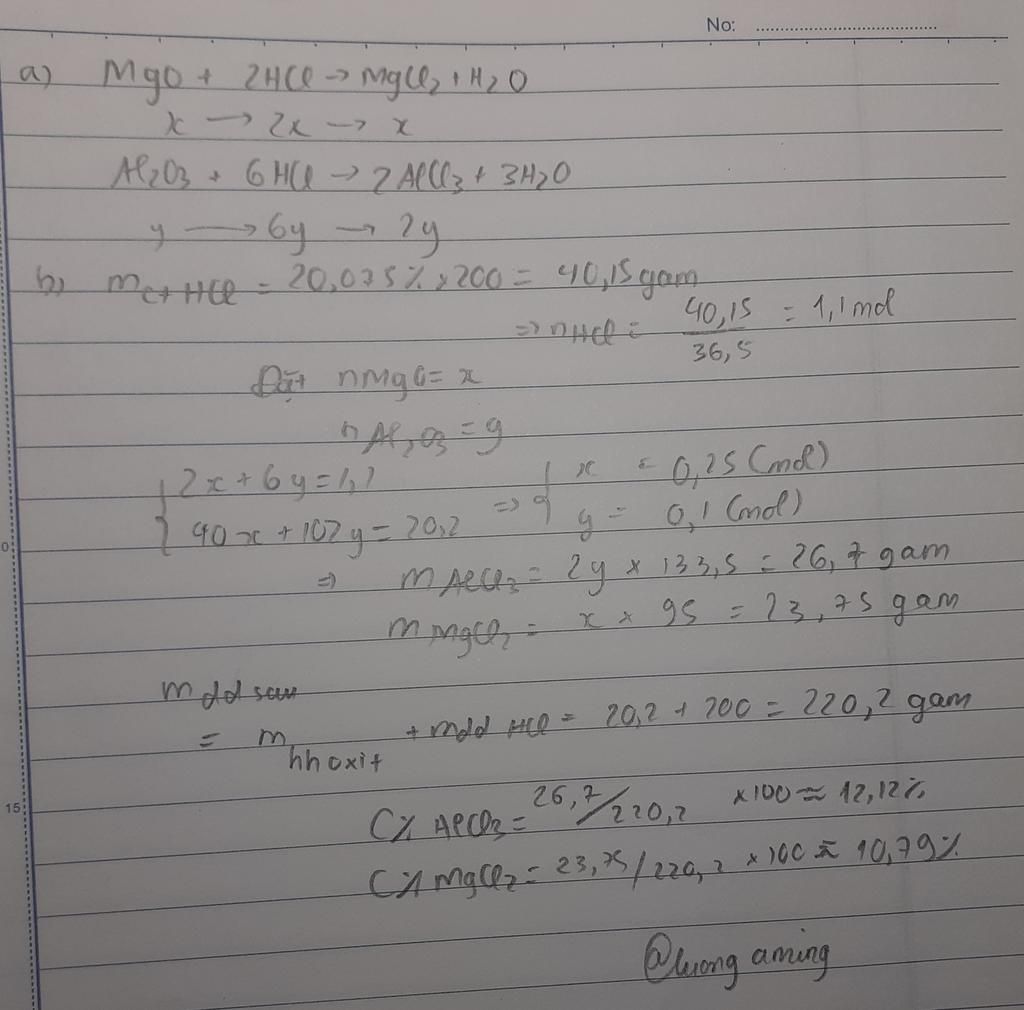 No: ..........
a) MgO + 2HCl → MgCl2 + H2O
x → 2x → x
Al2O3 + 6HCl → 2AlCl3 + 3H2O
y → 6y → 2y
b) mct HCl = 20,075% x 200 = 40,15 gam
=> nHCl = 40,15 / 36,5 = 1,1 mol
Đặt nMgO = x
nAl2O3 = y
{ 2x + 6y = 1,1 => { x = 0,25 (mol)
40x + 102y = 20,2 y = 0,1 (mol)
=> mAlCl3 = 2y x 133,5 = 26,7 gam
mMgCl2 = x x 95 = 23,75 gam
m dd sau
= m hh oxit + mdd HCl = 20,2 + 200 = 220,2 gam
C% AlCl3 = 26,7/220,2 x100 ≈ 12,12%
C% MgCl2 = 23,75/220,2 x 100 ≈ 10,79%
15
@luong aming